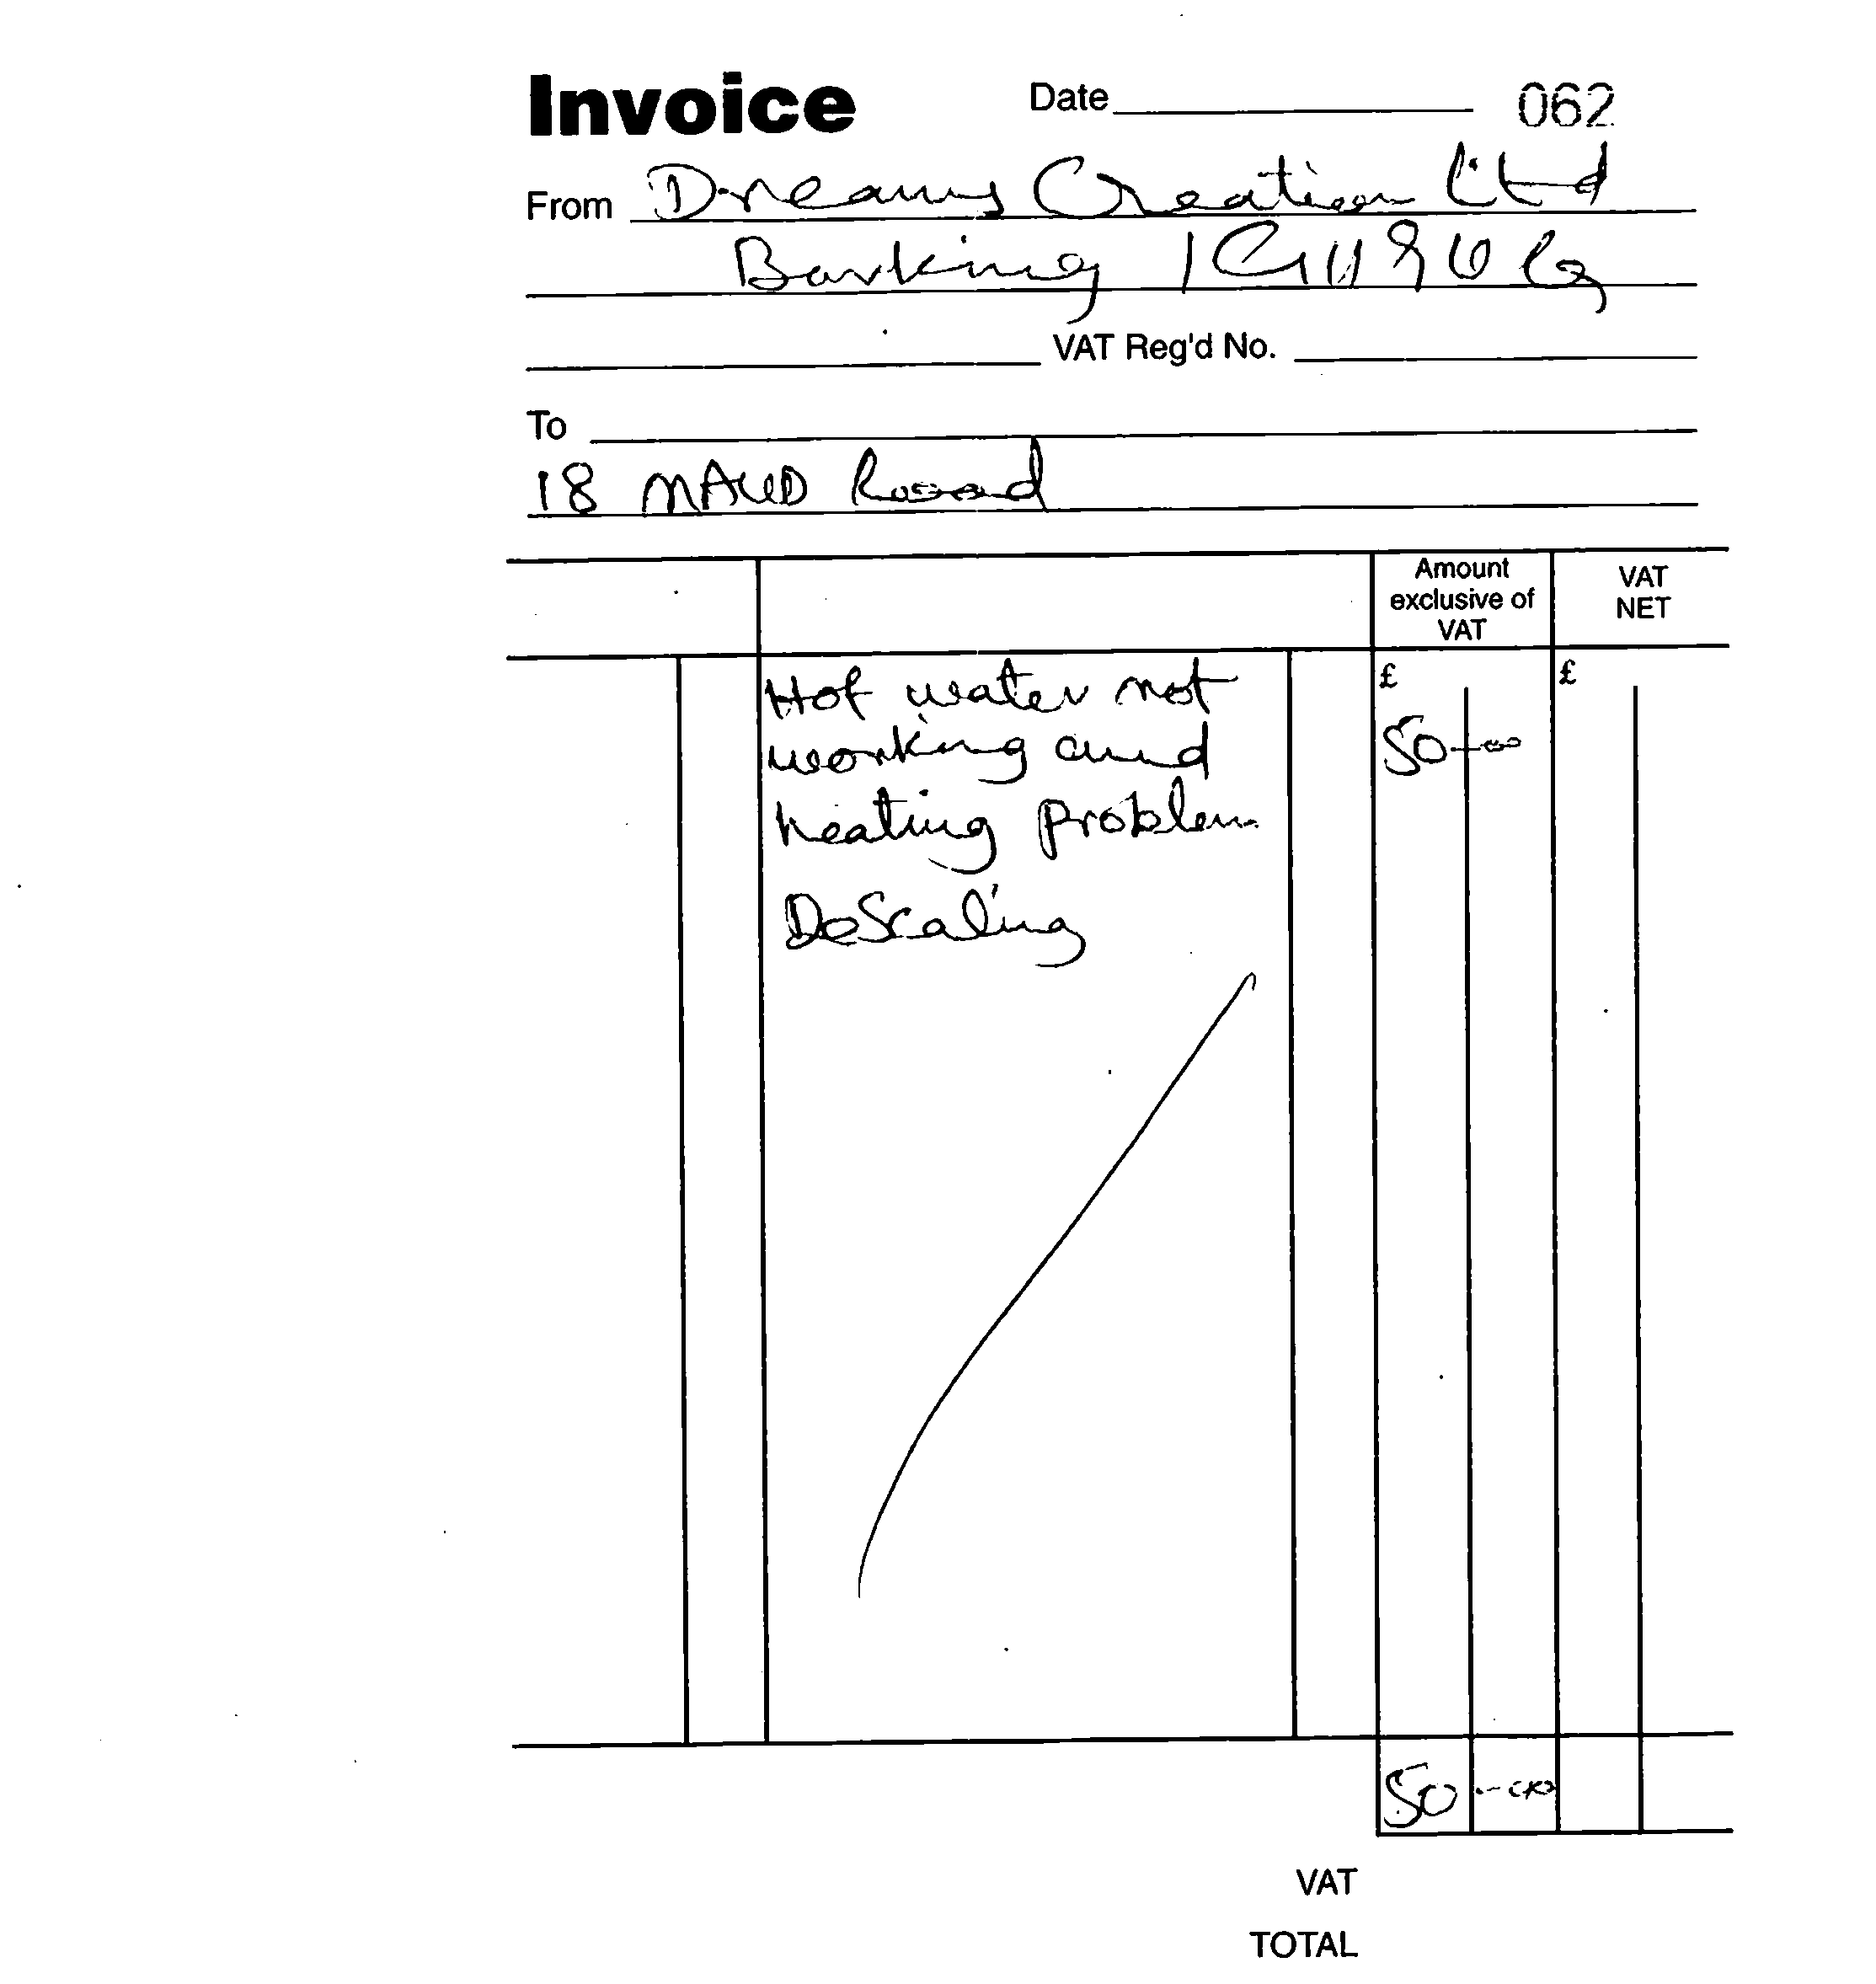 Invoice Date 062
From Dreams Creation Ltd
Barking IG11
VAT Reg'd No.
To
18 MAUD Road
Amount exclusive of VAT VAT NET
£ £
Hot water not
working and 50-00
heating problem
DeScaling
50-00
VAT
TOTAL